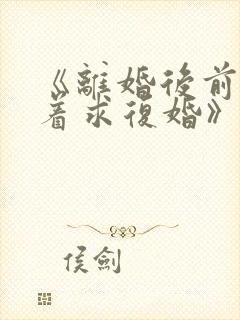 《離婚後前
着求復婚》
侯劍